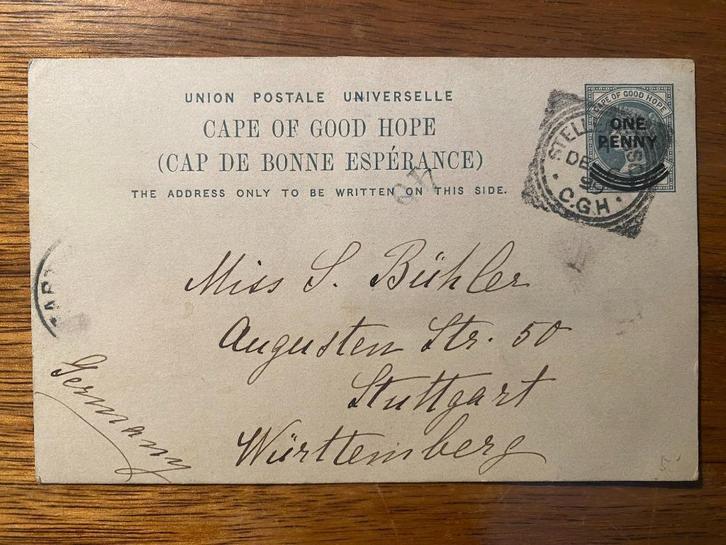 UNION POSTALE UNIVERSELLE
CAPE OF GOOD HOPE
(CAP DE BONNE ESPÉRANCE)
THE ADDRESS ONLY TO BE WRITTEN ON THIS SIDE.
CAPE OF GOOD HOPE
ONE
PENNY
C.G.H
Miss S. Bühler
Augusten Str. 50
Stuttgart
Württemberg
Germany